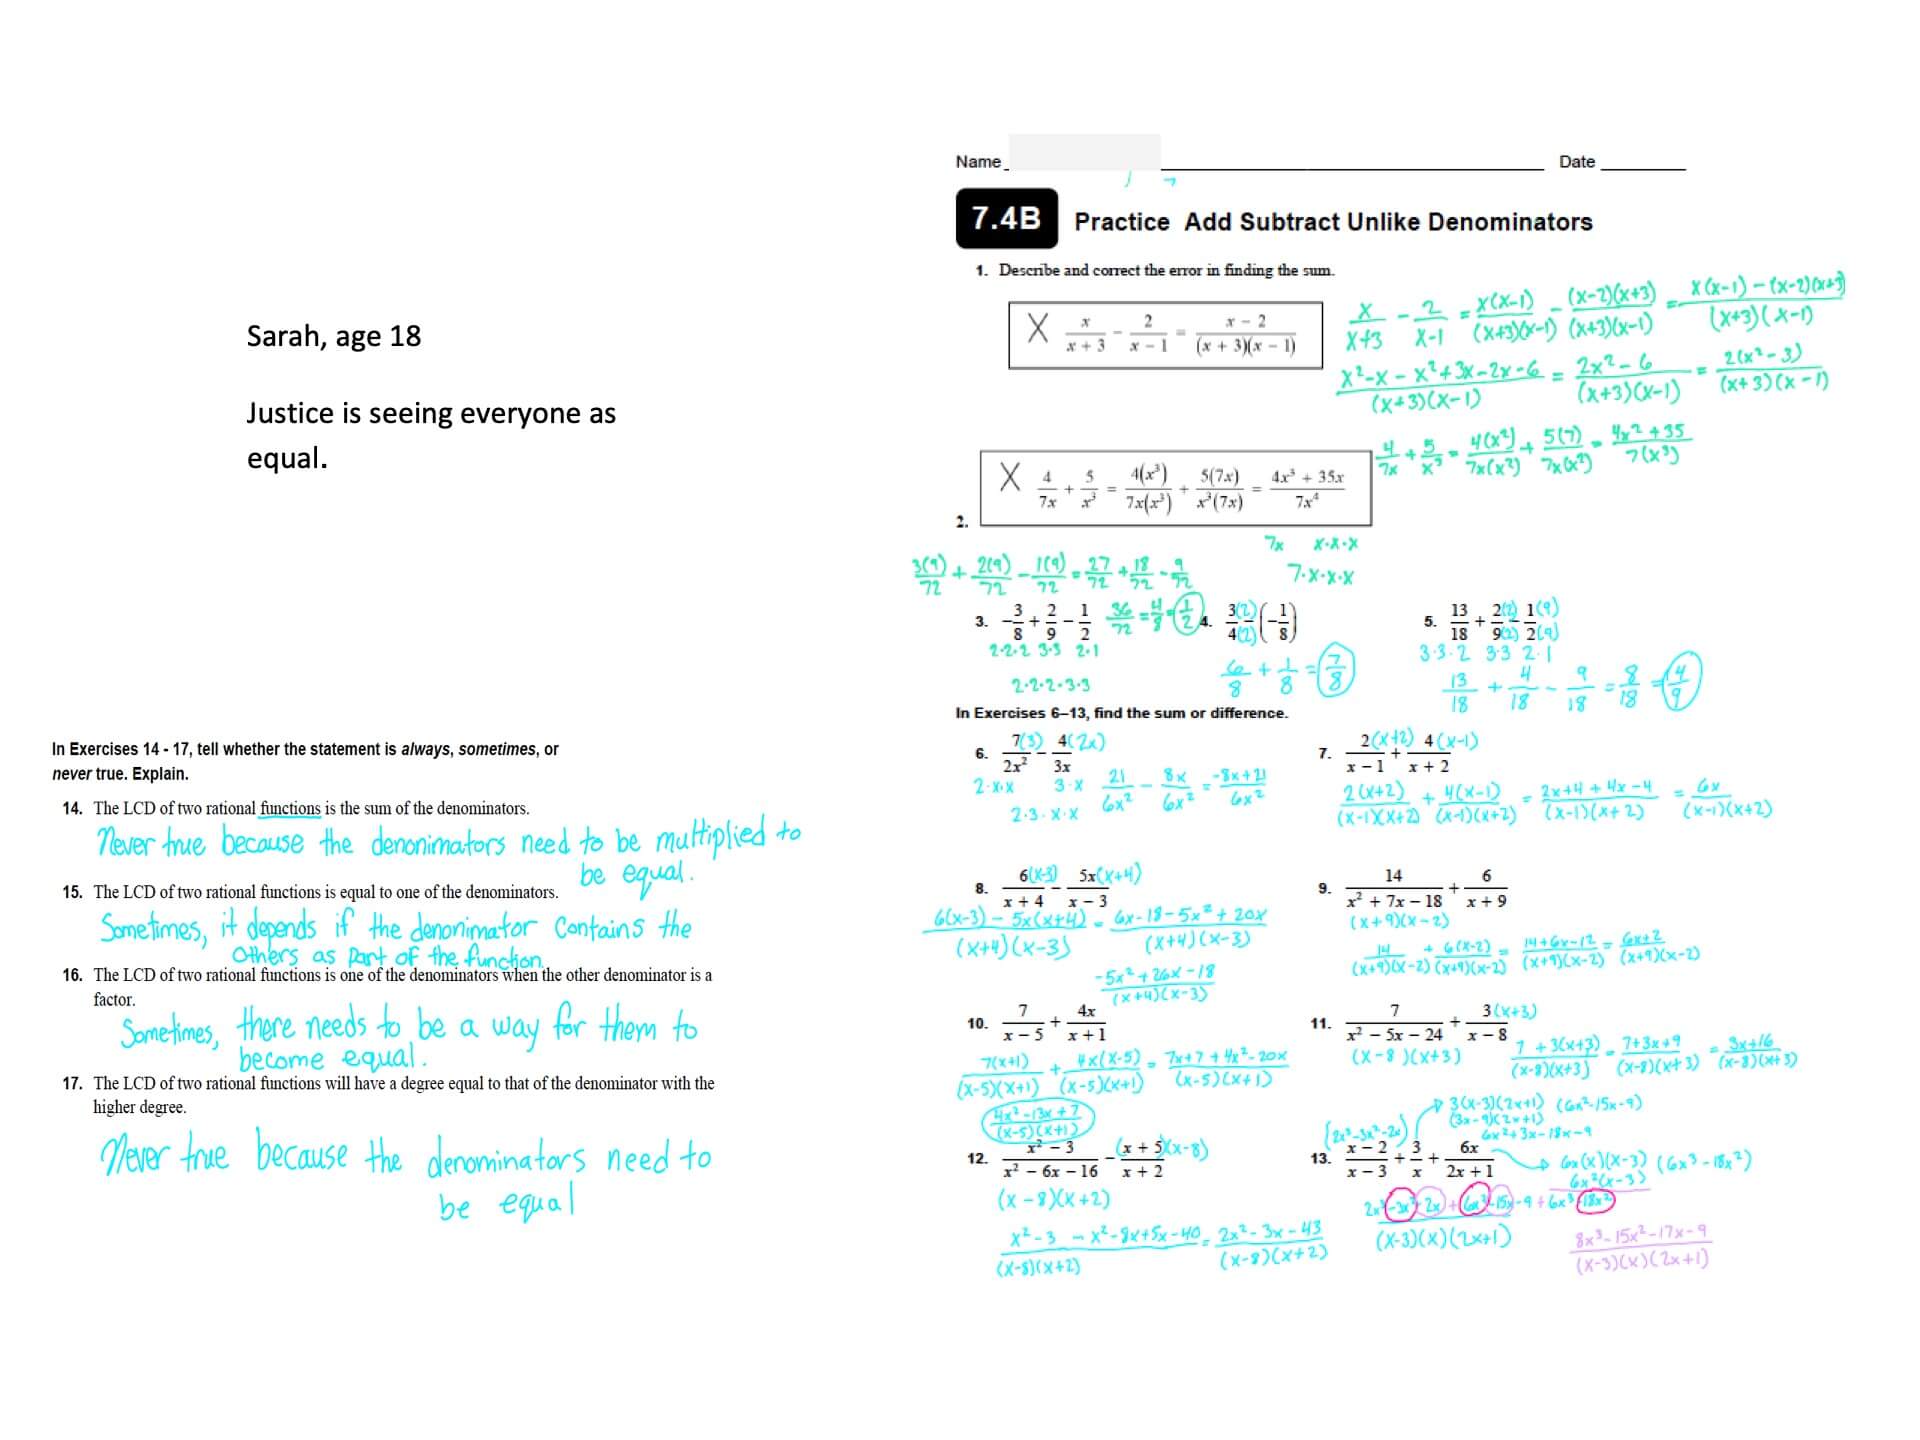 Sarah, age 18
Justice is seeing everyone as
equal.
In Exercises 14 - 17, tell whether the statement is always, sometimes, or
never true. Explain.
14. The LCD of two rational functions is the sum of the denominators.
Never true because the denonimators need to be multiplied to
be equal.
15. The LCD of two rational functions is equal to one of the denominators.
Sometimes, it depends if the denonimator contains the
others as part of the function.
16. The LCD of two rational functions is one of the denominators when the other denominator is a
factor.
Sometimes, there needs to be a way for them to
become equal.
17. The LCD of two rational functions will have a degree equal to that of the denominator with the
higher degree.
Never true because the denominators need to
be equal
Name Date
7.4B Practice Add Subtract Unlike Denominators
1. Describe and correct the error in finding the sum.
X x/(x + 3) − 2/(x − 1) = (x − 2)/((x + 3)(x − 1))
x/(x+3) - 2/(x-1) = x(x-1)/((x+3)(x-1)) - (x-2)(x+3)/((x+3)(x-1)) = (x(x-1) - (x-2)(x+3))/((x+3)(x-1))
(x²-x - x²+3x-2x-6)/((x+3)(x-1)) = (2x²-6)/((x+3)(x-1)) = 2(x²-3)/((x+3)(x-1))
2. X 4/(7x) + 5/x³ = 4(x³)/(7x(x³)) + 5(7x)/(x³(7x)) = (4x³ + 35x)/(7x⁴)
4/(7x) + 5/x³ = 4(x²)/(7x(x²)) + 5(7)/(7x(x²)) = (4x²+35)/(7(x³))
7x x·x·x
7·x·x·x
3(9)/72 + 2(9)/72 - 1(9)/72 = 27/72 + 18/72 - 9/72
36/72 = 4/8 = 1/2
3. −3/8 + 2/9 − 1/2
2·2·2 3·3 2·1
2·2·2·3·3
4. 3(2)/4(2) − (−1/8)
6/8 + 1/8 = 7/8
5. 13/18 + 2(2)/9(2) − 1(9)/2(9)
3·3·2 3·3 2·1
13/18 + 4/18 - 9/18 = 8/18 = 4/9
In Exercises 6–13, find the sum or difference.
6. 7(3)/(2x²) − 4(2x)/(3x)
2·x·x 3·x 21/(6x²) - 8x/(6x²) = (-8x+21)/(6x²)
2·3·x·x
7. 2(x+2)/(x − 1) + 4(x-1)/(x + 2)
2(x+2)/((x-1)(x+2)) + 4(x-1)/((x-1)(x+2)) = (2x+4+4x-4)/((x-1)(x+2)) = 6x/((x-1)(x+2))
8. 6(x-3)/(x + 4) − 5x(x+4)/(x − 3)
(6(x-3) - 5x(x+4))/((x+4)(x-3)) = (6x-18-5x²+20x)/((x+4)(x-3))
(-5x²+26x-18)/((x+4)(x-3))
9. 14/(x² + 7x − 18) + 6/(x + 9)
(x+9)(x-2)
14/((x+9)(x-2)) + 6(x-2)/((x+9)(x-2)) = (14+6x-12)/((x+9)(x-2)) = (6x+2)/((x+9)(x-2))
10. 7/(x − 5) + 4x/(x + 1)
7(x+1)/((x-5)(x+1)) + 4x(x-5)/((x-5)(x+1)) = (7x+7+4x²-20x)/((x-5)(x+1))
(4x²-13x+7)/((x-5)(x+1))
11. 7/(x² − 5x − 24) + 3(x+3)/(x − 8)
(x-8)(x+3)
(7+3(x+3))/((x-8)(x+3)) = (7+3x+9)/((x-8)(x+3)) = (3x+16)/((x-8)(x+3))
12. (x² − 3)/(x² − 6x − 16) − (x + 5)(x-8)/(x + 2)
(x-8)(x+2)
(x²-3 - x²-8x+5x-40)/((x-8)(x+2)) = (2x²-3x-43)/((x-8)(x+2))
3(x-3)(2x+1) (6x²-15x-9)
(3x-9)(2x+1)
6x²+3x-18x-9
(2x³-3x²-2x)
13. (x − 2)/(x − 3) + 3/x + 6x/(2x + 1)
6x(x)(x-3) (6x³-18x²)
6x²(x-3)
(2x³-3x²-2x+6x²-15x-9+6x³-18x²)/((x-3)(x)(2x+1))
(8x³-15x²-17x-9)/((x-3)(x)(2x+1))